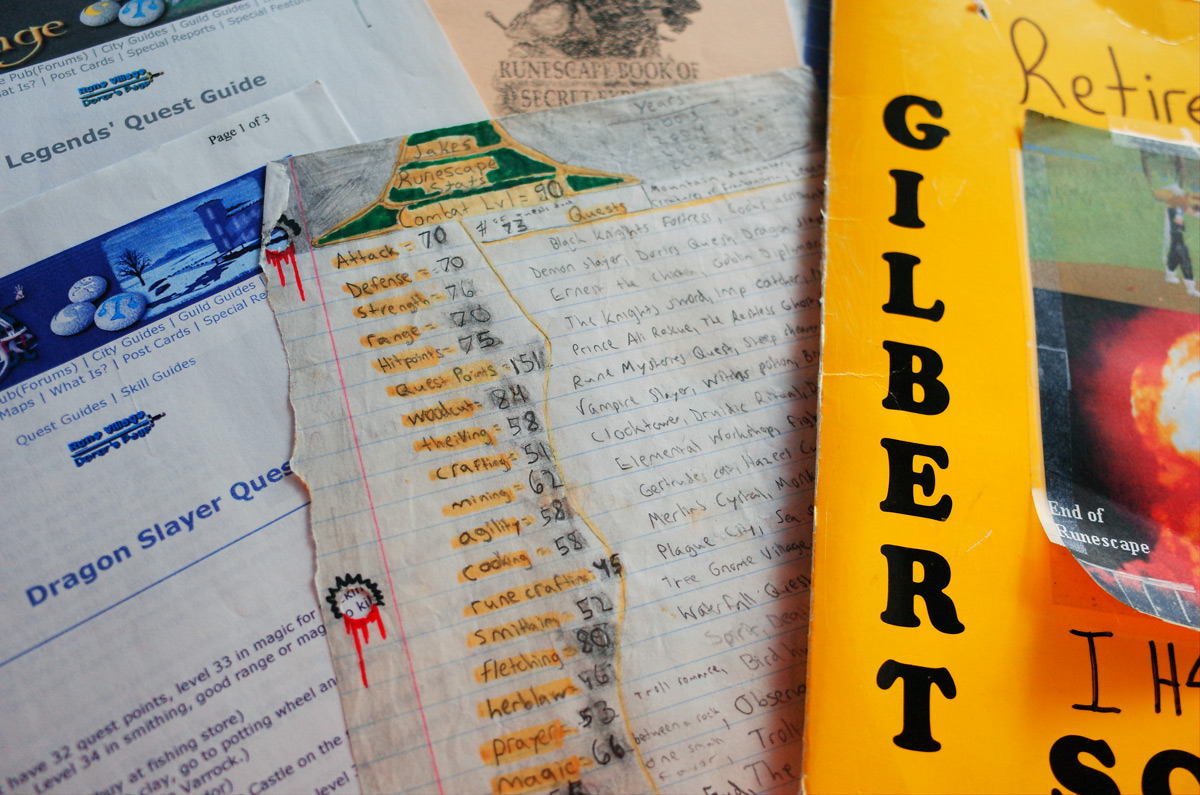 nge
Pub(Forums) | City Guides | Guild Guides |
What Is? | Post Cards | Special Reports | Special Featur
Rune Village
Legends' Quest Guide
Page 1 of 3
Pub(Forums) | City Guides | Guild Guides |
Maps | What Is? | Post Cards | Special Re
Quest Guides | Skill Guides
Rune Village
Dragon Slayer Ques
have 32 quest points, level 33 in magic for
Level 34 in smithing, good range or mag
buy at fishing store)
clay, go to potting wheel an
Varrock.)
Castle on the
level
RUNESCAPE BOOK OF
SECRET
Years
Jakes
Runescape
Stats
Combat Lvl = 90
# 73 Quests
Attack = 70
Defense = 70
strength = 76
range = 70
Hitpoints = 75
Quest Points = 151
woodcut = 84
theiving = 58
crafting = 51
mining = 62
agility = 58
cooking = 58
runecrafting = 45
smithing = 52
fletching = 80
herblaw = 46
prayer = 53
magic = 66
Black Knights Fortress, Cooks
Demon slayer, Dorics Quest, Dragon
Ernest the chicken, Goblin Diplom
The Knights sword, imp catcher,
Prince Ali Rescue, The Restless Ghost
Rune Mysteries Quest, sheep
Vampire Slayer, Witches potion,
Clocktower, Druidic Ritual,
Elemental Workshop, Figh
Gertrudes cat, Hazeel Cu
Merlins Crystal, Monk
Plague City, Sea
Tree Gnome Village
Waterfall Quest
Troll romance, Bird
between a rock, Observa
one small favor, Troll
The
GILBERT
Retire
End of
Runescape
I HA
SO